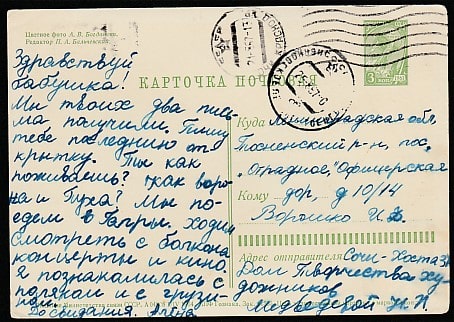 Цветное фото А. В. Богданова
Редактор Н. А. Бельчевская
КАРТОЧКА ПОЧТОВАЯ
3 коп
Здравствуй
бабушка!
Мы твоих два пись-
ма получили. Пишу
тебе последнюю от-
крытку. Ты как
поживаешь? как воро-
на и Пуха? Мы по-
едем в Гагры, ходим
смотреть с балкона
концерты и кино.
Я познакомилась с
полякой и с грузи-
До свидания. Алёна
Куда Ленинградская обл.
Тосненский р-н, пос.
"Отрадное", Офицерская
Кому дор, д 10/14
Ворошко
Адрес отправителя Сочи-Хоста
Дом Творчества ху-
дожников
Медведевой Н. П.